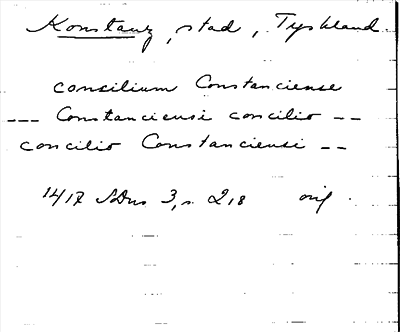 Konstanz, stad, Tyskland.
concilium Constanciense
--- Constanciensi concilio --
concilio Constanciensi --
1417 SDns 3, s. 218 orig.